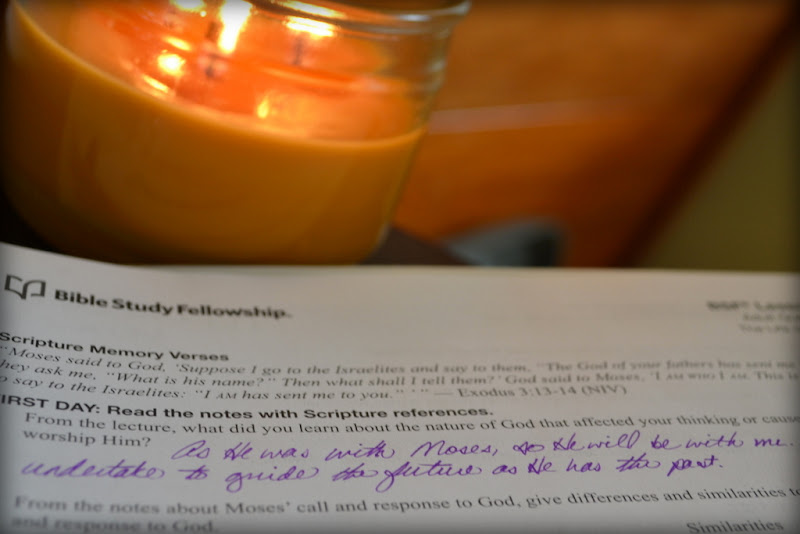 Bible Study Fellowship.
Scripture Memory Verses
"Moses said to God, 'Suppose I go to the Israelites and say to them, "The God of your fathers has sent me
hey ask me, "What is his name?" Then what shall I tell them?' God said to Moses, 'I AM WHO I AM. This is
o say to the Israelites: "I AM has sent me to you." ' " — Exodus 3:13-14 (NIV)
IRST DAY: Read the notes with Scripture references.
From the lecture, what did you learn about the nature of God that affected your thinking or cause
worship Him? As He was with Moses, so He will be with me.
undertake to guide the future as He has the past.
From the notes about Moses' call and response to God, give differences and similarities to
and response to God.
Similarities